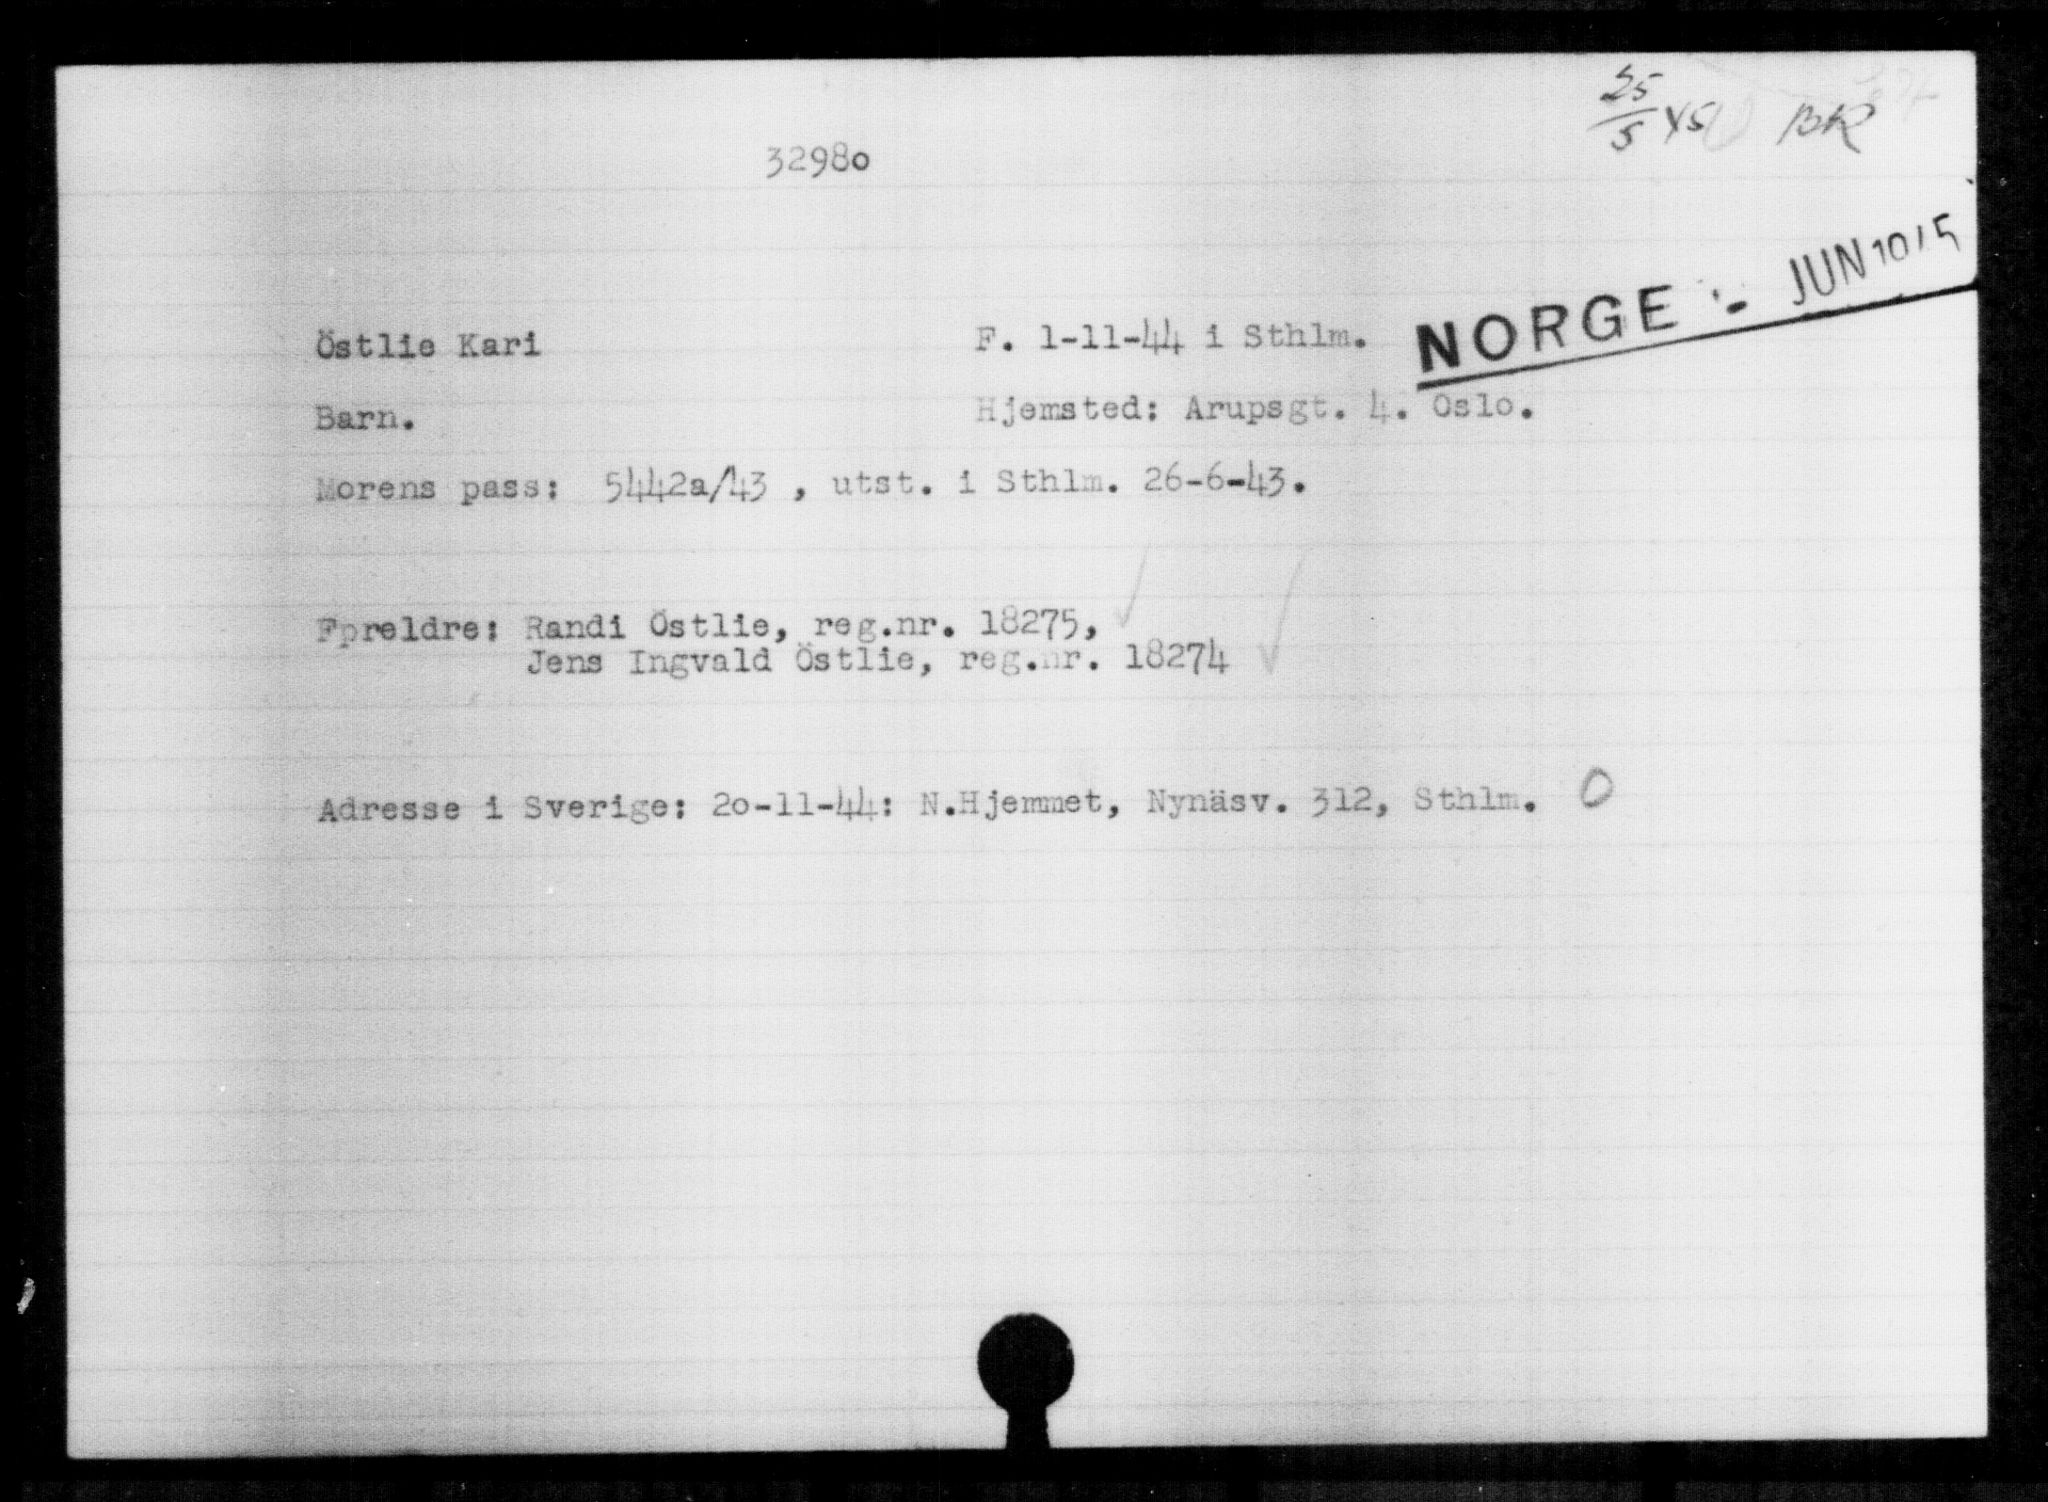 25/5 45 BR
32980
NORGE - JUN 1945
Östlie Kari F. 1-11-44 i Sthlm.
Barn. Hjemsted: Arupsgt. 4. Oslo.
Morens pass: 5442a/43 , utst. i Sthlm. 26-6-43.
Fpreldre: Randi Östlie, reg.nr. 18275,
Jens Ingvald Östlie, reg.nr. 18274
Adresse i Sverige: 2o-11-44: N.Hjemmet, Nynäsv. 312, Sthlm. O